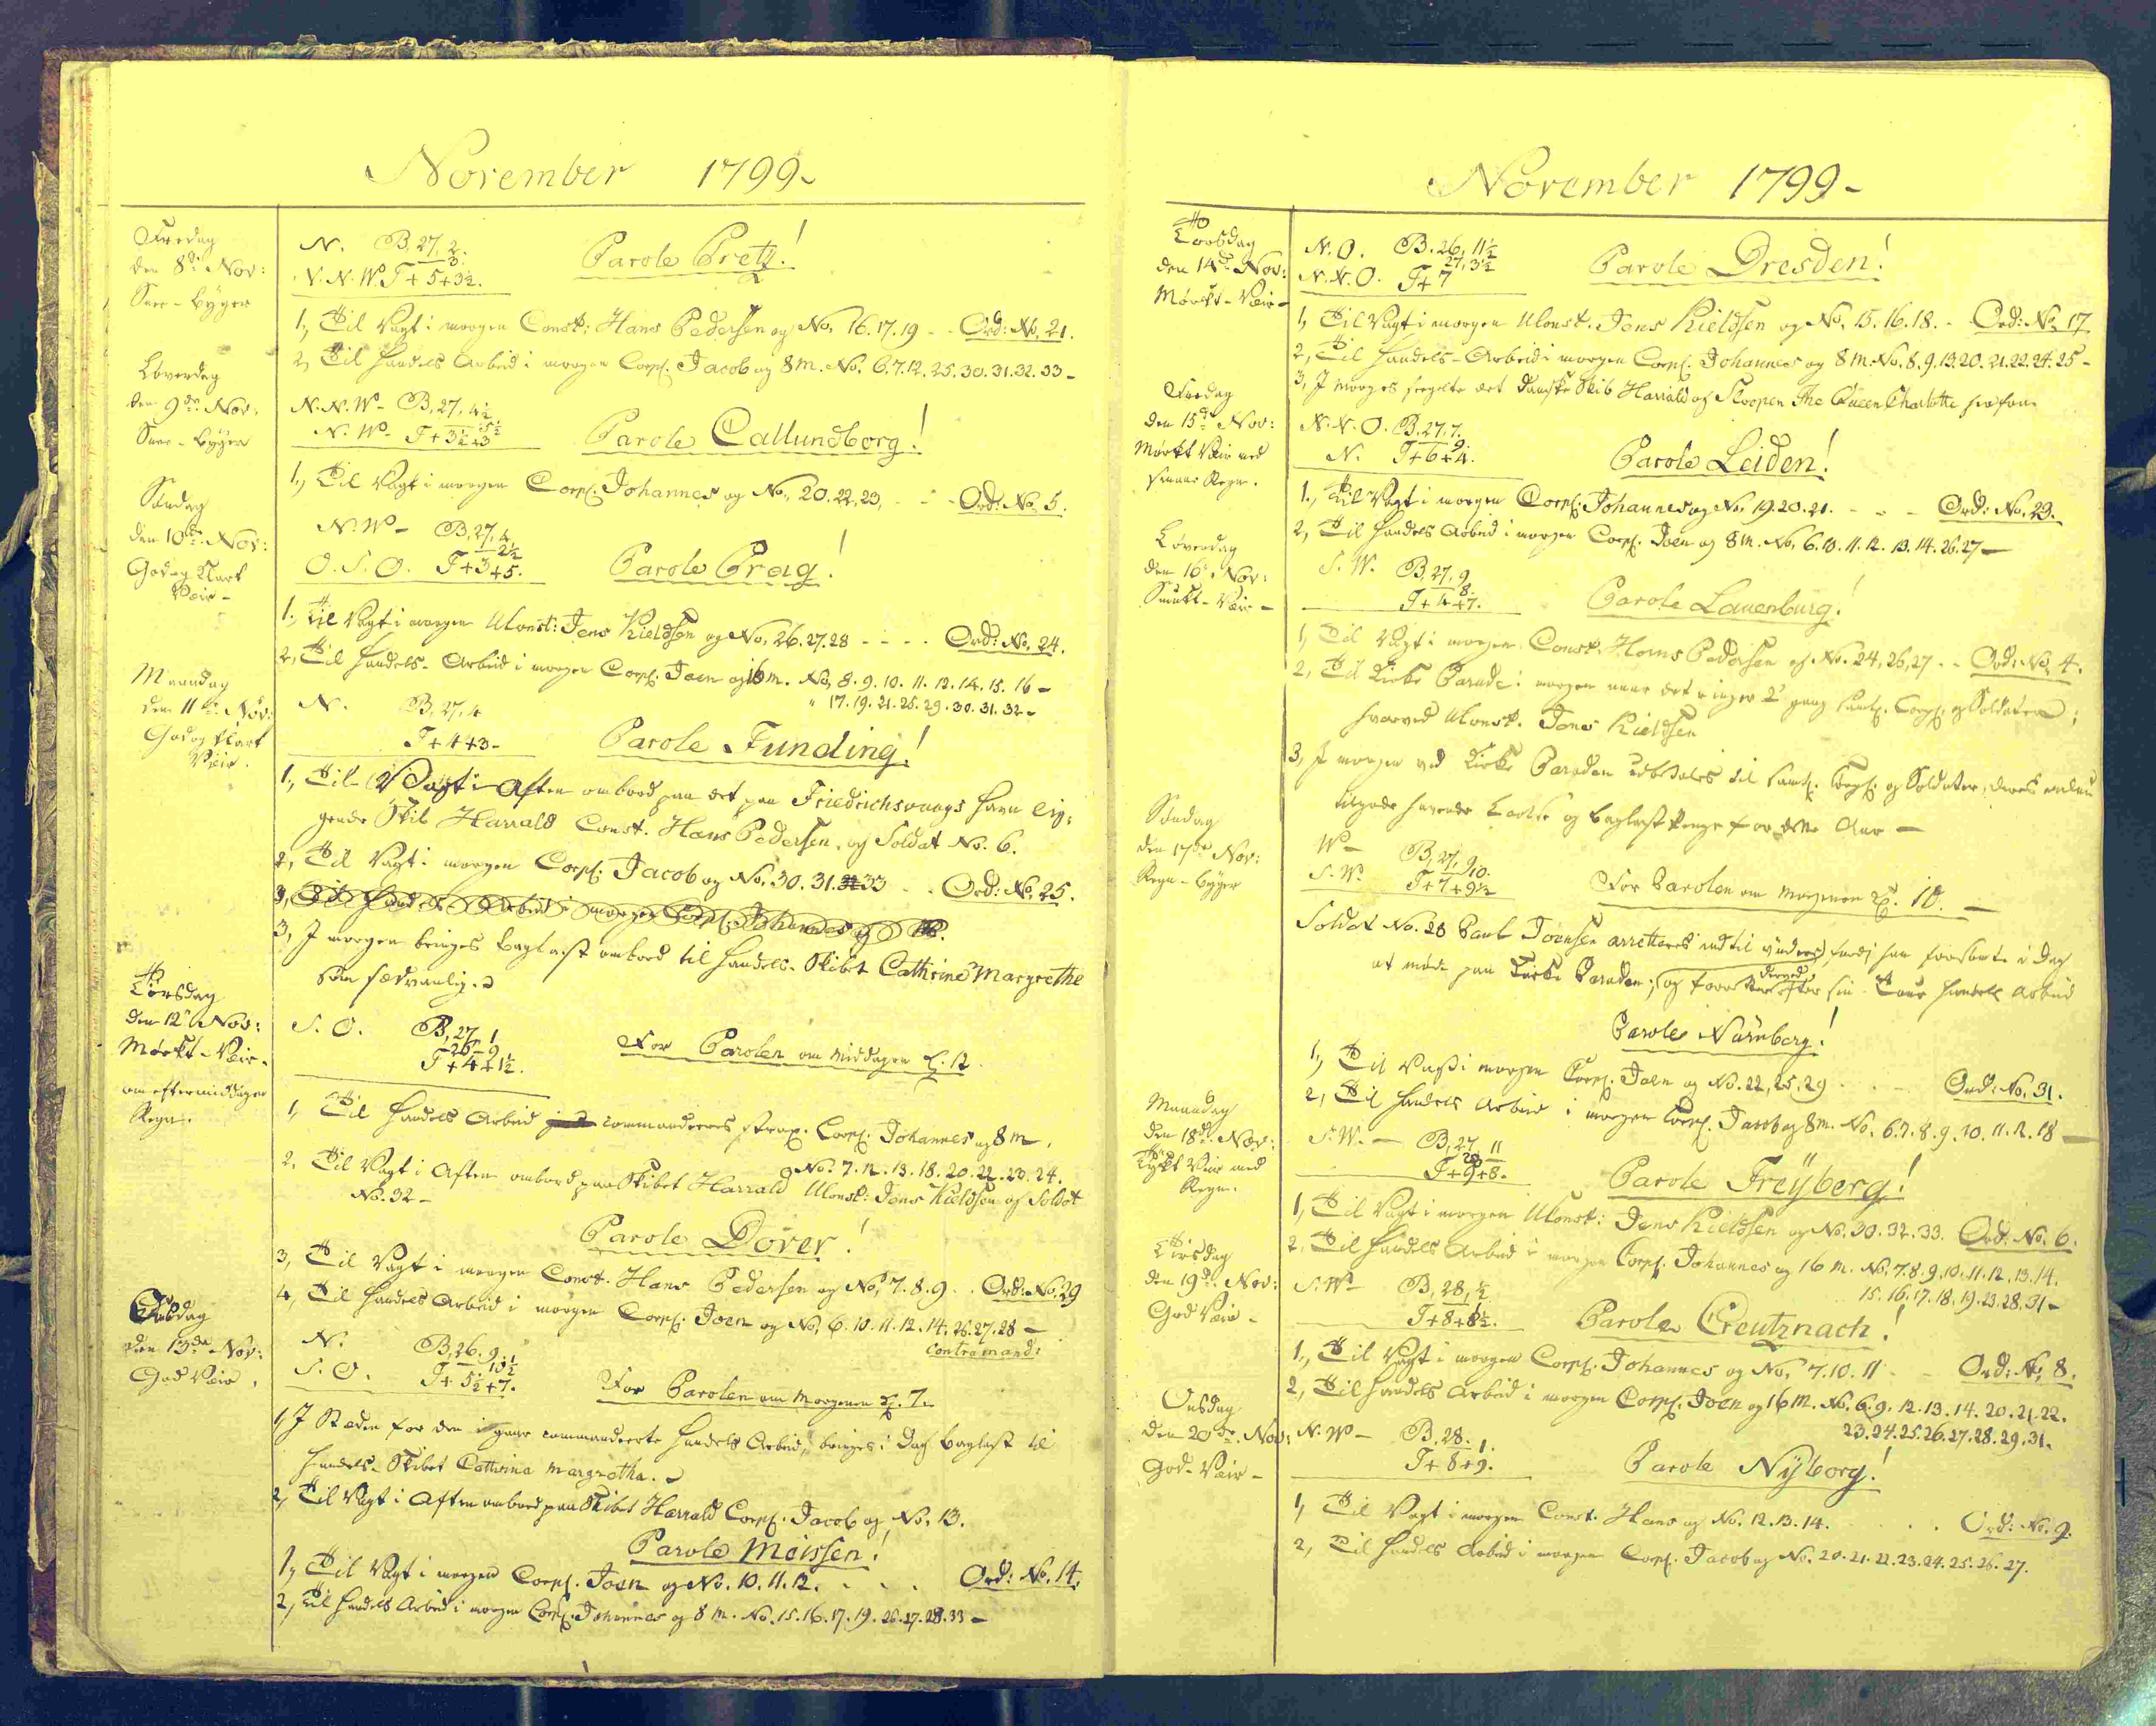 November 1799-
Fredag
den 8de Nov:
Snee-Byger
N. B. 27, 2.
3.
N. N. W. T+5+3½.
Parole Pretz!
1, Til Vagt i morgen Const: Hans Pedersen og No. 16. 17. 19 - - Ord: No. 21.
2, Til Handels Arbeid i morgen Corpl. Jacob og 8 M. No. 6. 7. 12. 25. 30. 31. 32. 33 -
Löverdag
den 9de Nov:
Snee-Byger
N. N. W- B. 27, 4½
5½
N. W- T+3½+3
Parole Callundborg!
1, Til Vagt i morgen Corpl. Johannes og No. 20. 22. 23. - - - Ord: No. 5.
Söndag
den 10de Nov:
God og Klart
Veir-
N. W- B. 27, 4
2½
O. S. O. T+3+5.
Parole Prag!
1, Til Vagt i morgen Uconst: Jens Kieldsen og No. 26. 27. 28 - - - - Ord: No. 24.
2, Til Handels-Arbeid i morgen Corpl. Joen og 16 M. No. 8. 9. 10. 11. 12. 14. 15. 16 -
" 17. 19. 21. 25. 29. 30. 31. 32 -
Maandag
den 11te Nov:
God og klart
Veir.
N. B. 27, 4
T+4+3-
Parole Funding!
1, Til Vagt i Aften ombord paa det paa Friedrichsvaags Havn lig-
gende Skib Harrald Const. Hans Pedersen, og Soldat No. 6.
2, Til Vagt i morgen Corpl. Jacob og No. 30. 31. 33 - - Ord: No. 25.
3, Til Handels Arbeid i morgen Corpl. Johannes og
3, I morgen bringes Baglast ombord til Handels-Skibet Cathrine Margrethe
som sædvanlig.
Tirsdag
den 12te Nov:
Mörkt-Veir-
om eftermiddagen
Regn.
S. O. B. 27, 1
26-9
T+4+1½.
For Parolen om Middagen Kl. 12.
1, Til Handels Arbeid commanderes strax Corpl. Johannes og 8 M.
No. 7. 12. 13. 18. 20. 22. 23. 24.
2. Til Vagt i Aften ombord paa Skibet Harrald Uconst: Jens Kieldsen og Soldat
No. 32-
Parole Dover!
3, Til Vagt i morgen Const. Hans Pedersen og No. 7. 8. 9 . . Ord: No. 29
4, Til Handels Arbeid i morgen Corpl. Joen og No. 6. 10. 11. 12. 14. 26. 27. 28 -
contramand:
Onsdag
den 13de Nov:
God Veir.
N. B. 26. 9.
10½
S. O. T+5½+7.
For Parolen om Morgenen Kl. 7-
1, I Stæden for den igaar commanderte Handels Arbeid, bringes i Dag Baglast til
Handels-Skibet Cathrina Margretha.
2, Til Vagt i Aften ombord paa Skibet Harrald Corpl. Jacob og No. 13.
Parole Meissen!
1, Til Vagt i morgen Corpl. Joen og No. 10. 11. 12. . . . Ord: No. 14.
2, Til Handels Arbeid i morgen Corpl. Johannes og 8 M. No. 15. 16. 17. 19. 26. 27. 28. 33 -
November 1799-
Torsdag
den 14de Nov:
Mörckt-Veir-
N. O. B. 26, 11½
27, 3½
N. N. O. T+7
Parole Dresden!
1, Til Vagt i morgen Uconst. Jens Kieldsen og No. 15. 16. 18. - Ord: No. 17
2, Til Handels-Arbeid i morgen Corpl. Johannes og 8 M. No. 8. 9. 13. 20. 21. 22. 24. 25 -
3, I morges seegelte det Danske Skib Harrald og Sloopen The Queen Charlotte herfra
Fredag
den 15de Nov:
Mörkt Veir med
Regn.
N. N. O. B. 27, 7.
9.
N. T+6+4.
Parole Leiden!
1, Til Vagt i morgen Corpl: Johannes og No. 19. 20. 21. - - - Ord: No. 23.
2, Til Handels Arbeid i morgen Corpl. Joen og 8 M. No. 6. 10. 11. 12. 13. 14. 26. 27 -
Löverdag
den 16de Nov:
Smukt-Veir-
S. W. B. 27, 9
8.
T+4+7.
Parole Lauenburg!
1, Til Vagt i morgen Const. Hans Pedersen og No. 24, 26, 27. - Ord: No. 4.
2, Til Kirke Parade i morgen naar det ringer 2de gang samtl. Corpl. og Soldater;
hvorved Uconst. Jens Kieldsen
3, I morgen ved Kirke Paraden udbetales til samtl. Corpl: og Soldater, deres endnu
tilgode havende og Baglast Penge for dette Aar -
Söndag
den 17de Nov:
Regn-Byger
W- B. 27, 9
10.
S. W. T+7+9½
For Parolen om Morgenen Kl. 10. -
Soldat No. 28 Paul Joensen arretteres indtil videre, fordi han forsömte i Dag
at möde paa Kirke Paraden; og derved
Parole Nürnberg!
1, Til Vagt i morgen Corpl. Joen og No. 22, 25. 29 . . - Ord: No. 31.
2, Til Handels Arbeid i morgen Corpl. Jacob og 8 M. No. 6. 7. 8. 9. 10. 11. 12. 18 -
Maandag
den 18de Nov:
Tykt Veir med
Regn.
S. W. - B. 27, 11
T+9+8.
Parole Freÿberg!
1, Til Vagt i morgen Uconst: Jens Kieldsen og No. 30. 32. 33. Ord: No. 6.
2. Til Handels Arbeid i morgen Corpl. Johannes og 16 M. No. 7. 8. 9. 10. 11. 12. 13. 14.
15. 16. 17. 18. 19. 23. 28. 31 -
Tirsdag
den 19de Nov:
God Veir-
S. W- B. 28, ½
T+8+8½.
Parole Creutznach!
1, Til Vagt i morgen Corpl. Johannes og No. 7. 10. 11 - Ord: No. 8.
2, Til Handels Arbeid i morgen Corpl. Joen og 16 M. No. 6. 9. 12. 13. 14. 20. 21. 22.
23. 24. 25. 26. 27. 28. 29. 31.
Onsdag
den 20de Nov:
God-Veir-
N. W- B. 28. 1.
T+8+9.
Parole Nÿborg!
1, Til Vagt i morgen Const. Hans og No. 12. 13. 14. . . . Ord: No. 9.
2, Til Handels Arbeid i morgen Corpl. Jacob og No. 20. 21. 22. 23. 24. 25. 26. 27.